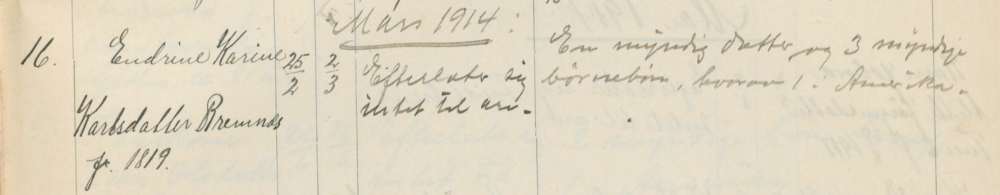 Mars 1914:
16. Endrine Karine 25/2 2/3 Efterlater sig En myndig datter og 3 myndige
Karlsdatter Bremnes intet til arv. børnebørn, hvorav 1 i Amerika.
f. 1819.